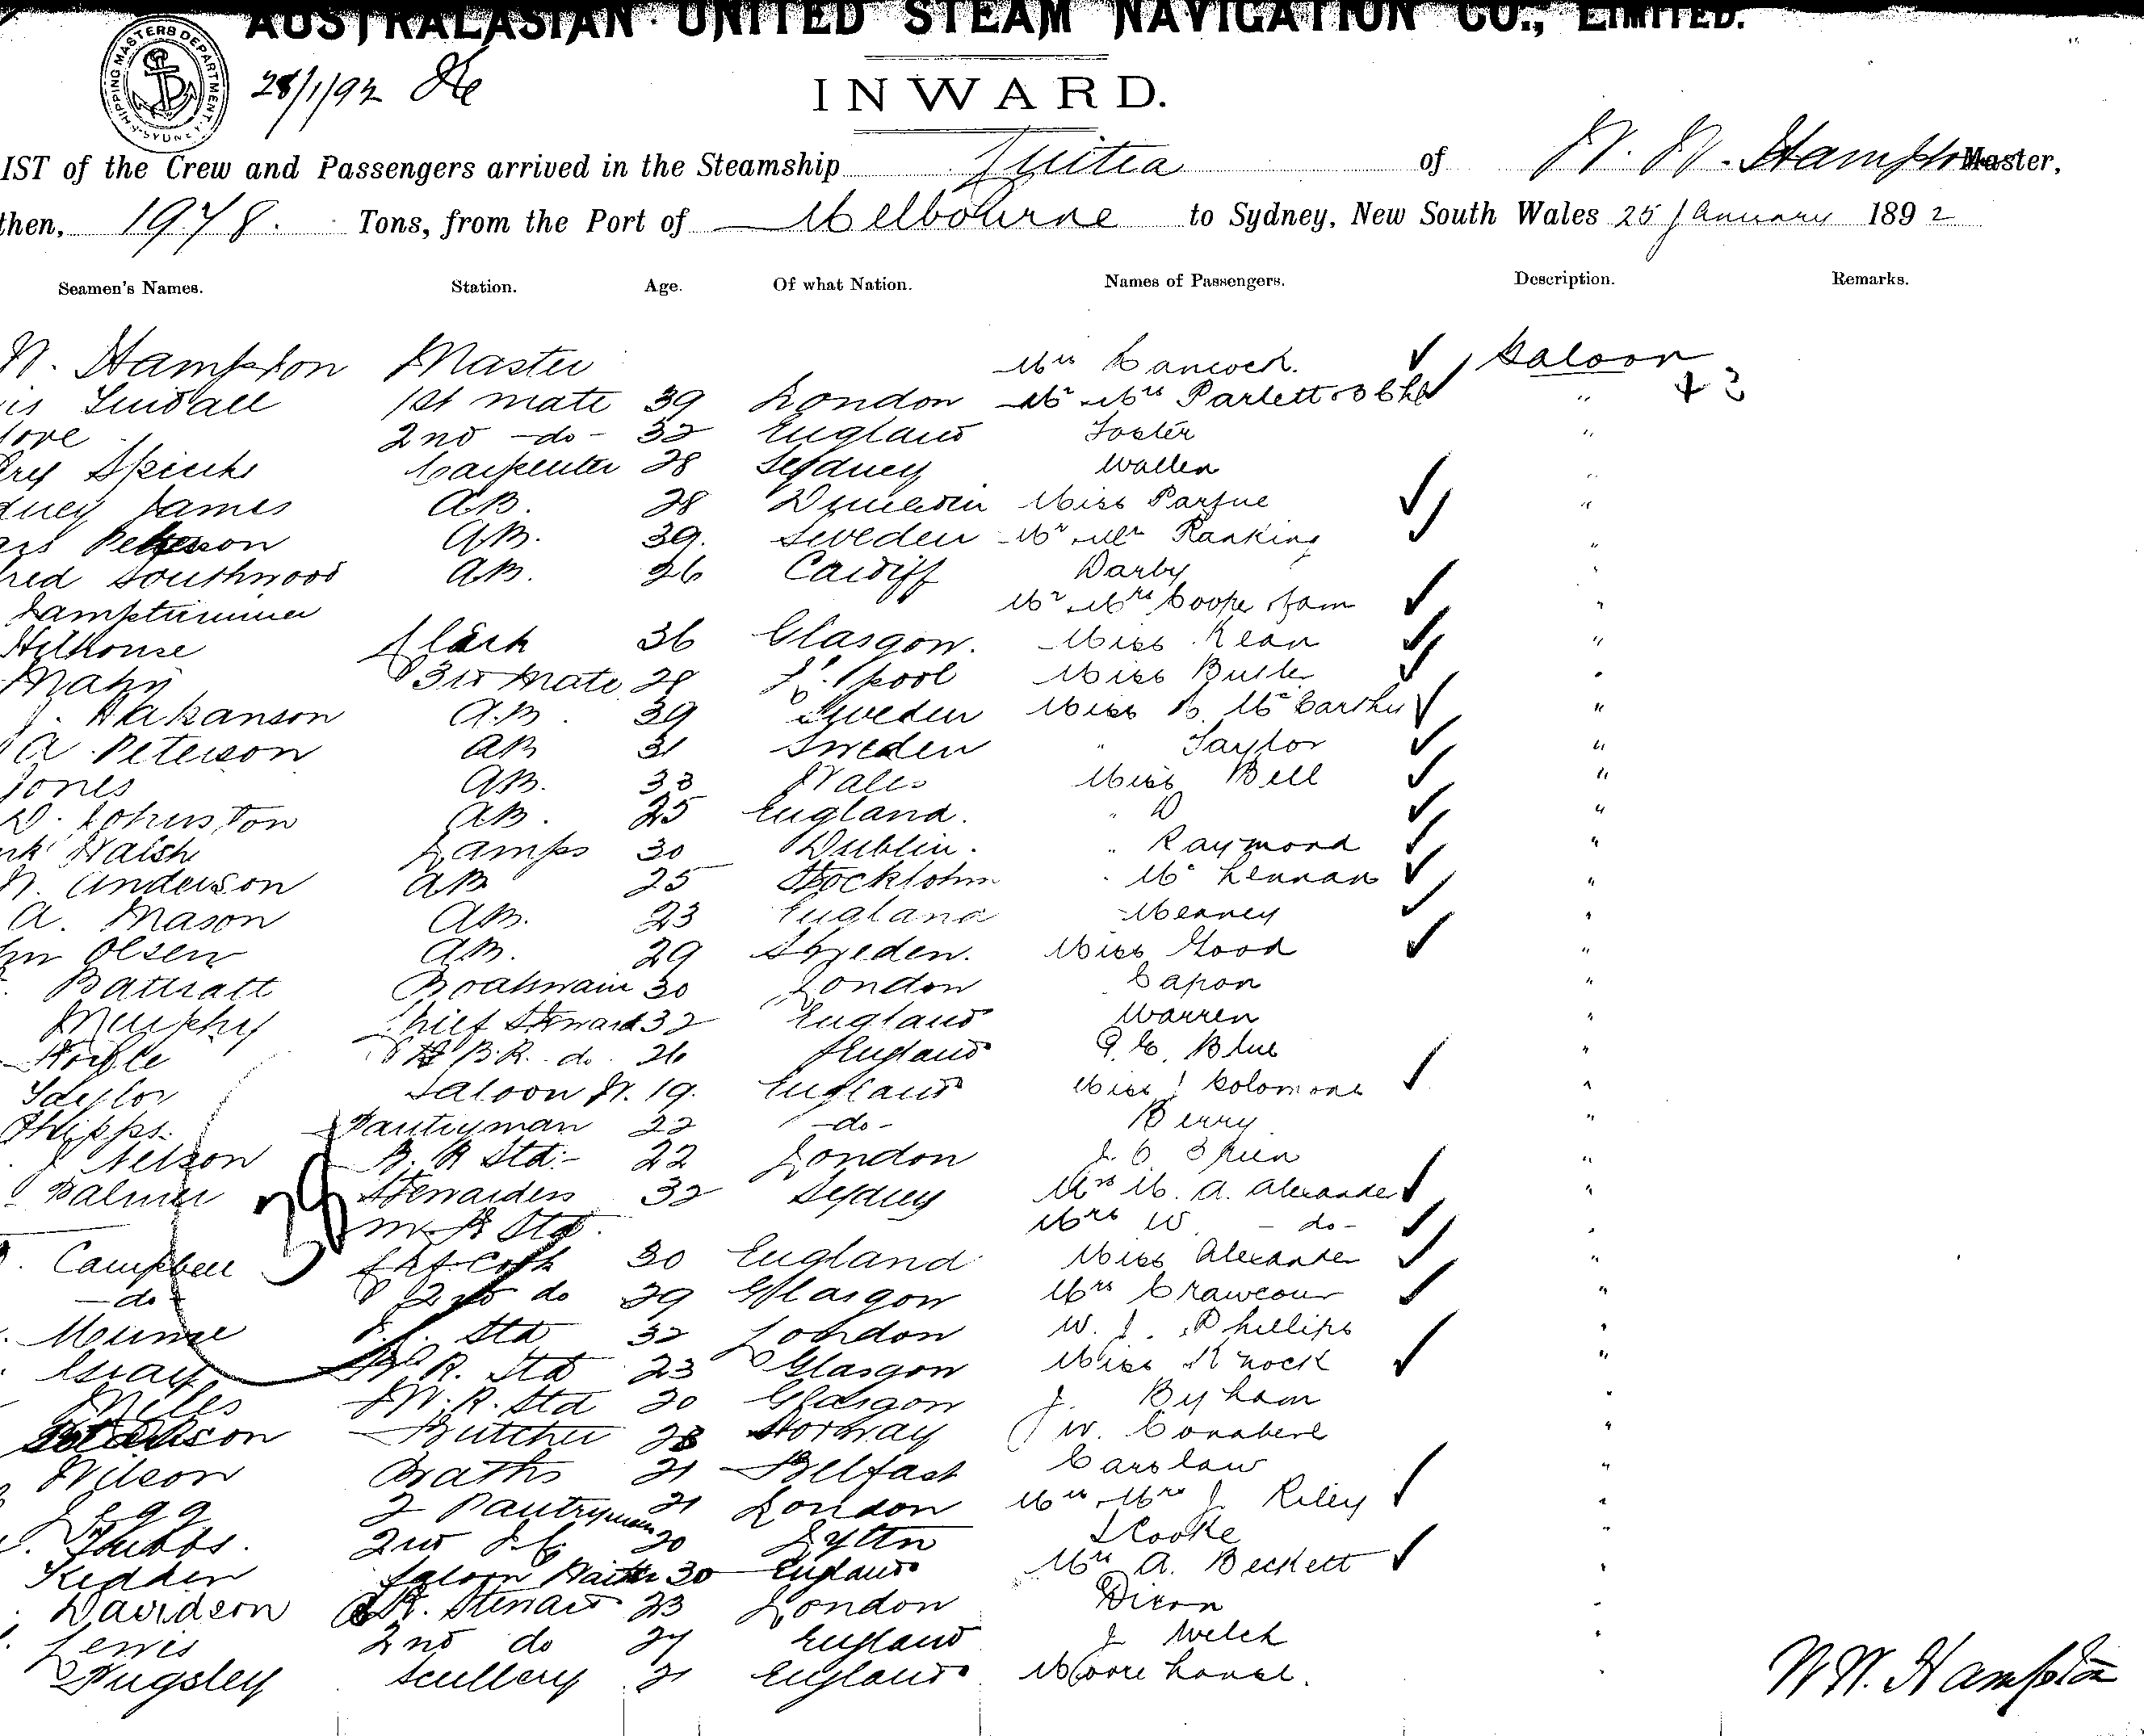 AUSTRALASIAN UNITED STEAM NAVIGATION CO., LIMITED.
SHIPPING MASTERS DEPARTMENT SYDNEY
28/1/92
INWARD.
IST of the Crew and Passengers arrived in the Steamship of W. W. Hampton Master,
then, 1978. Tons, from the Port of Melbourne to Sydney, New South Wales 25 January 1892
Seamen's Names. Station. Age. Of what Nation. Names of Passengers. Description. Remarks.
N. Hampton Master Mrs Hancock. Saloon
1st mate 39 London Mr Mrs Parlett & 3 Chd " + 3
2nd -do- 32 England Foster "
Carpenter 28 Sydney Wallen "
James A.B. 28 Dunedin Miss "
A.B. 39. Sweden Mr Mrs Ranking "
Southwood A.B. 26 Cardiff Darby "
Lamptrimmer Mr Mrs Cooper & fam "
Clerk 36 Glasgow. Miss Kean "
3rd Mate 28 L'pool Miss Butler "
J. Hakanson A.B. 39 Sweden Miss McCarthy "
A. Peterson AB 31 Sweden " Taylor "
Jones AB. 33 Wales Miss Bell "
D. Johnston AB. 25 England. " D "
Walsh Lamps 30 Dublin. " Raymond "
N. Anderson AB 25 Stocklohm " McLennan "
A. Mason AB. 23 England "
Olsen AB. 29 Sweden. Miss Good "
Battratt Boatswain 30 London Capon "
Murphy Chief Steward 32 England Warren "
B.R. do. 26 England Blue "
Taylor Saloon W. 19. England Miss Solomons "
Phipps. Pantryman 22 -do- Berry "
Nelson B. R Std:- 22 London "
Palmer Stewardess 32 Sydney Mrs M. A. Alexander "
38 Std. Mrs W. -do- "
Campbell 30 England Miss Alexander "
-do- 2nd do 29 Glasgow Mrs Crawcour "
Std 32 London W. J. Phillips "
Gray R. Std 23 Glasgow Miss Knock "
Miles R. Std 20 Glasgow J. Byham "
Butcher 28 Norway W. Conabere "
Wilson Baths 21 Belfast Carslaw "
Legg 2 Pantryman 21 London Mr Mrs J Riley "
2nd 20 Cooke "
Kedden Saloon Waiter 30 England Mrs A. Beckett "
Davidson R. Steward 23 London Dixon "
Lewis 2nd do 27 England J Welch "
Pugsley Scullery 21 England Moorehouse. "
W. W. Hampton